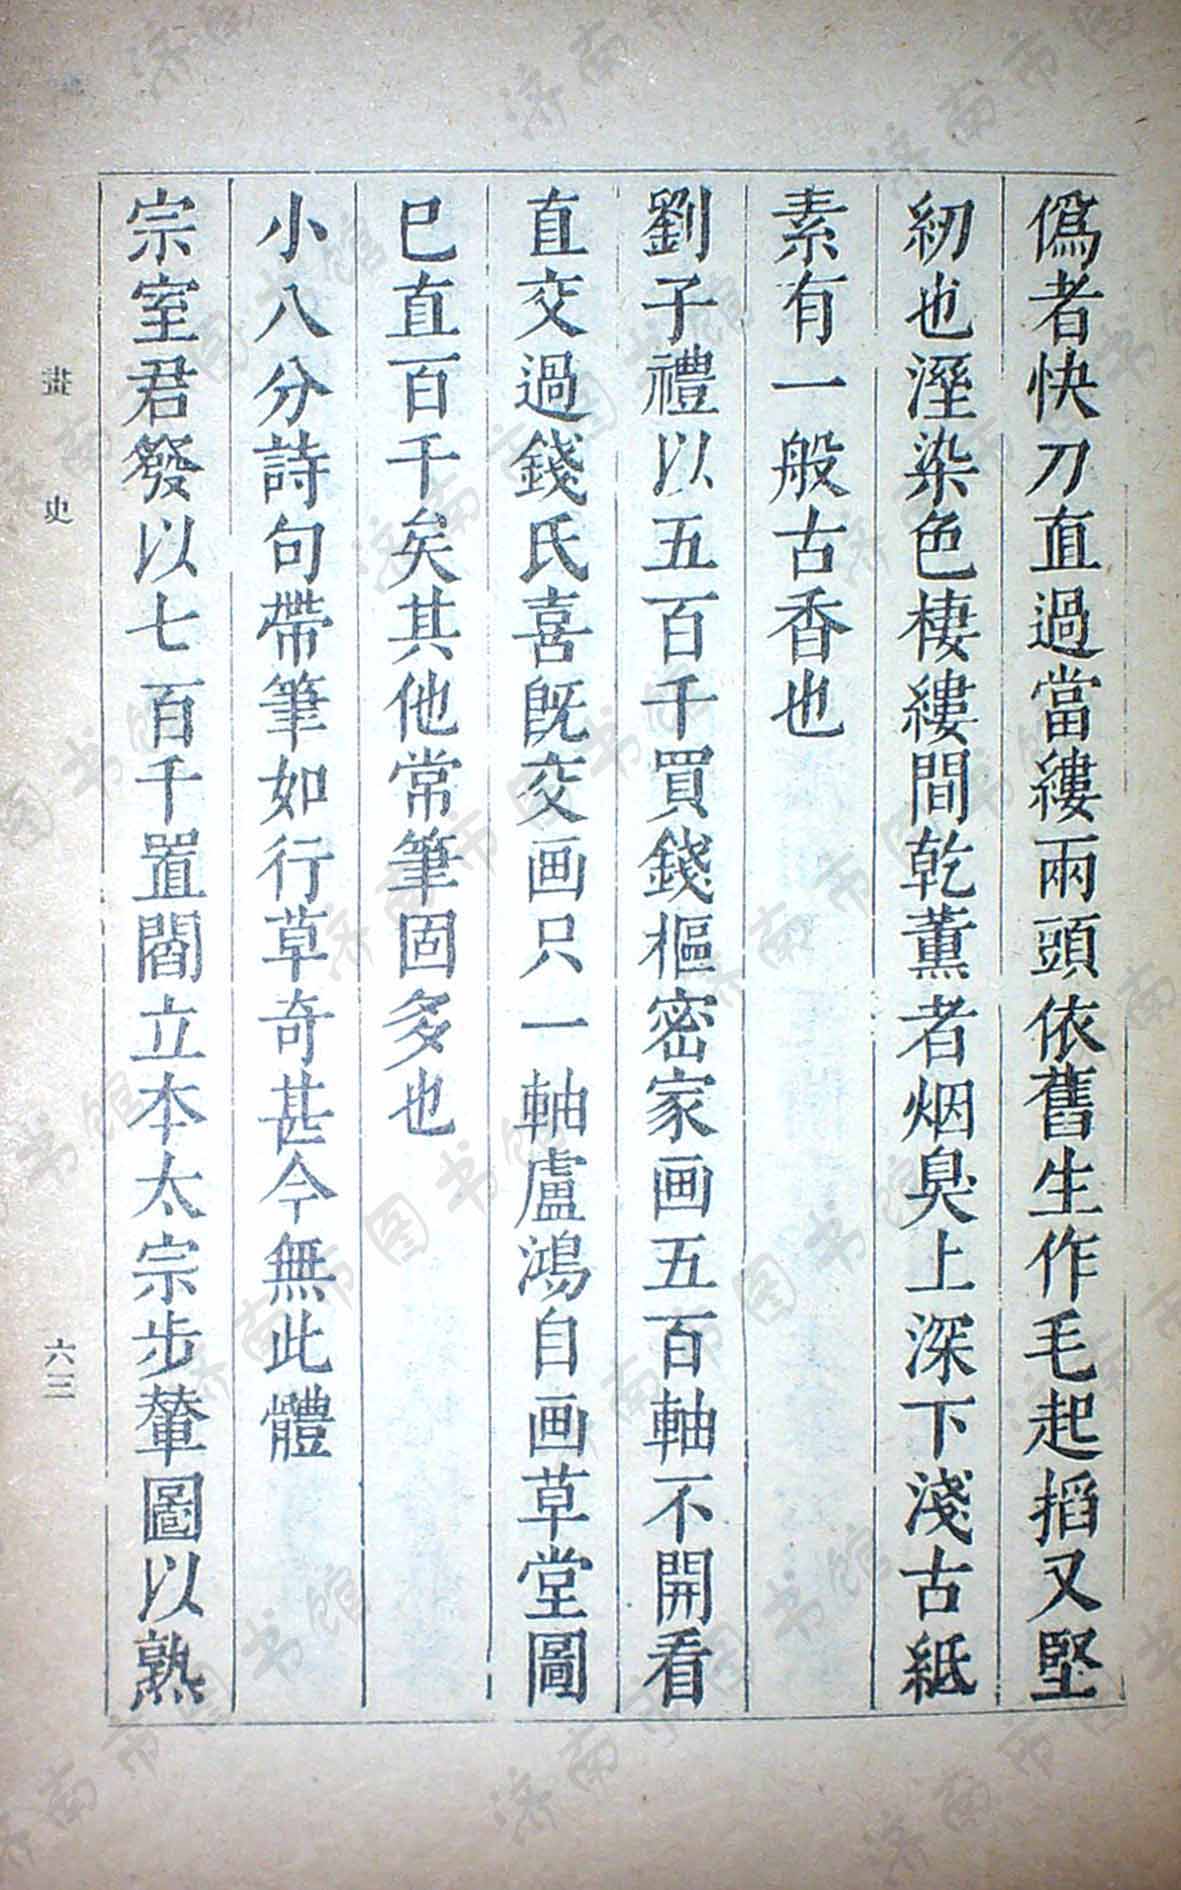 僞者快刀直過當縷兩頭依舊生作毛起搯又堅
紉也溼染色棲縷間乾薰者烟臭上深下淺古紙
素有一般古香也
劉子禮以五百千買錢樞密家画五百軸不開看
直交過錢氏喜旣交画只一軸盧鴻自画草堂圖
已直百千矣其他常筆固多也
小八分詩句帶筆如行草奇甚今無此體
宗室君發以七百千置閻立本太宗步輦圖以熟
畫史
六三
济南市图书馆